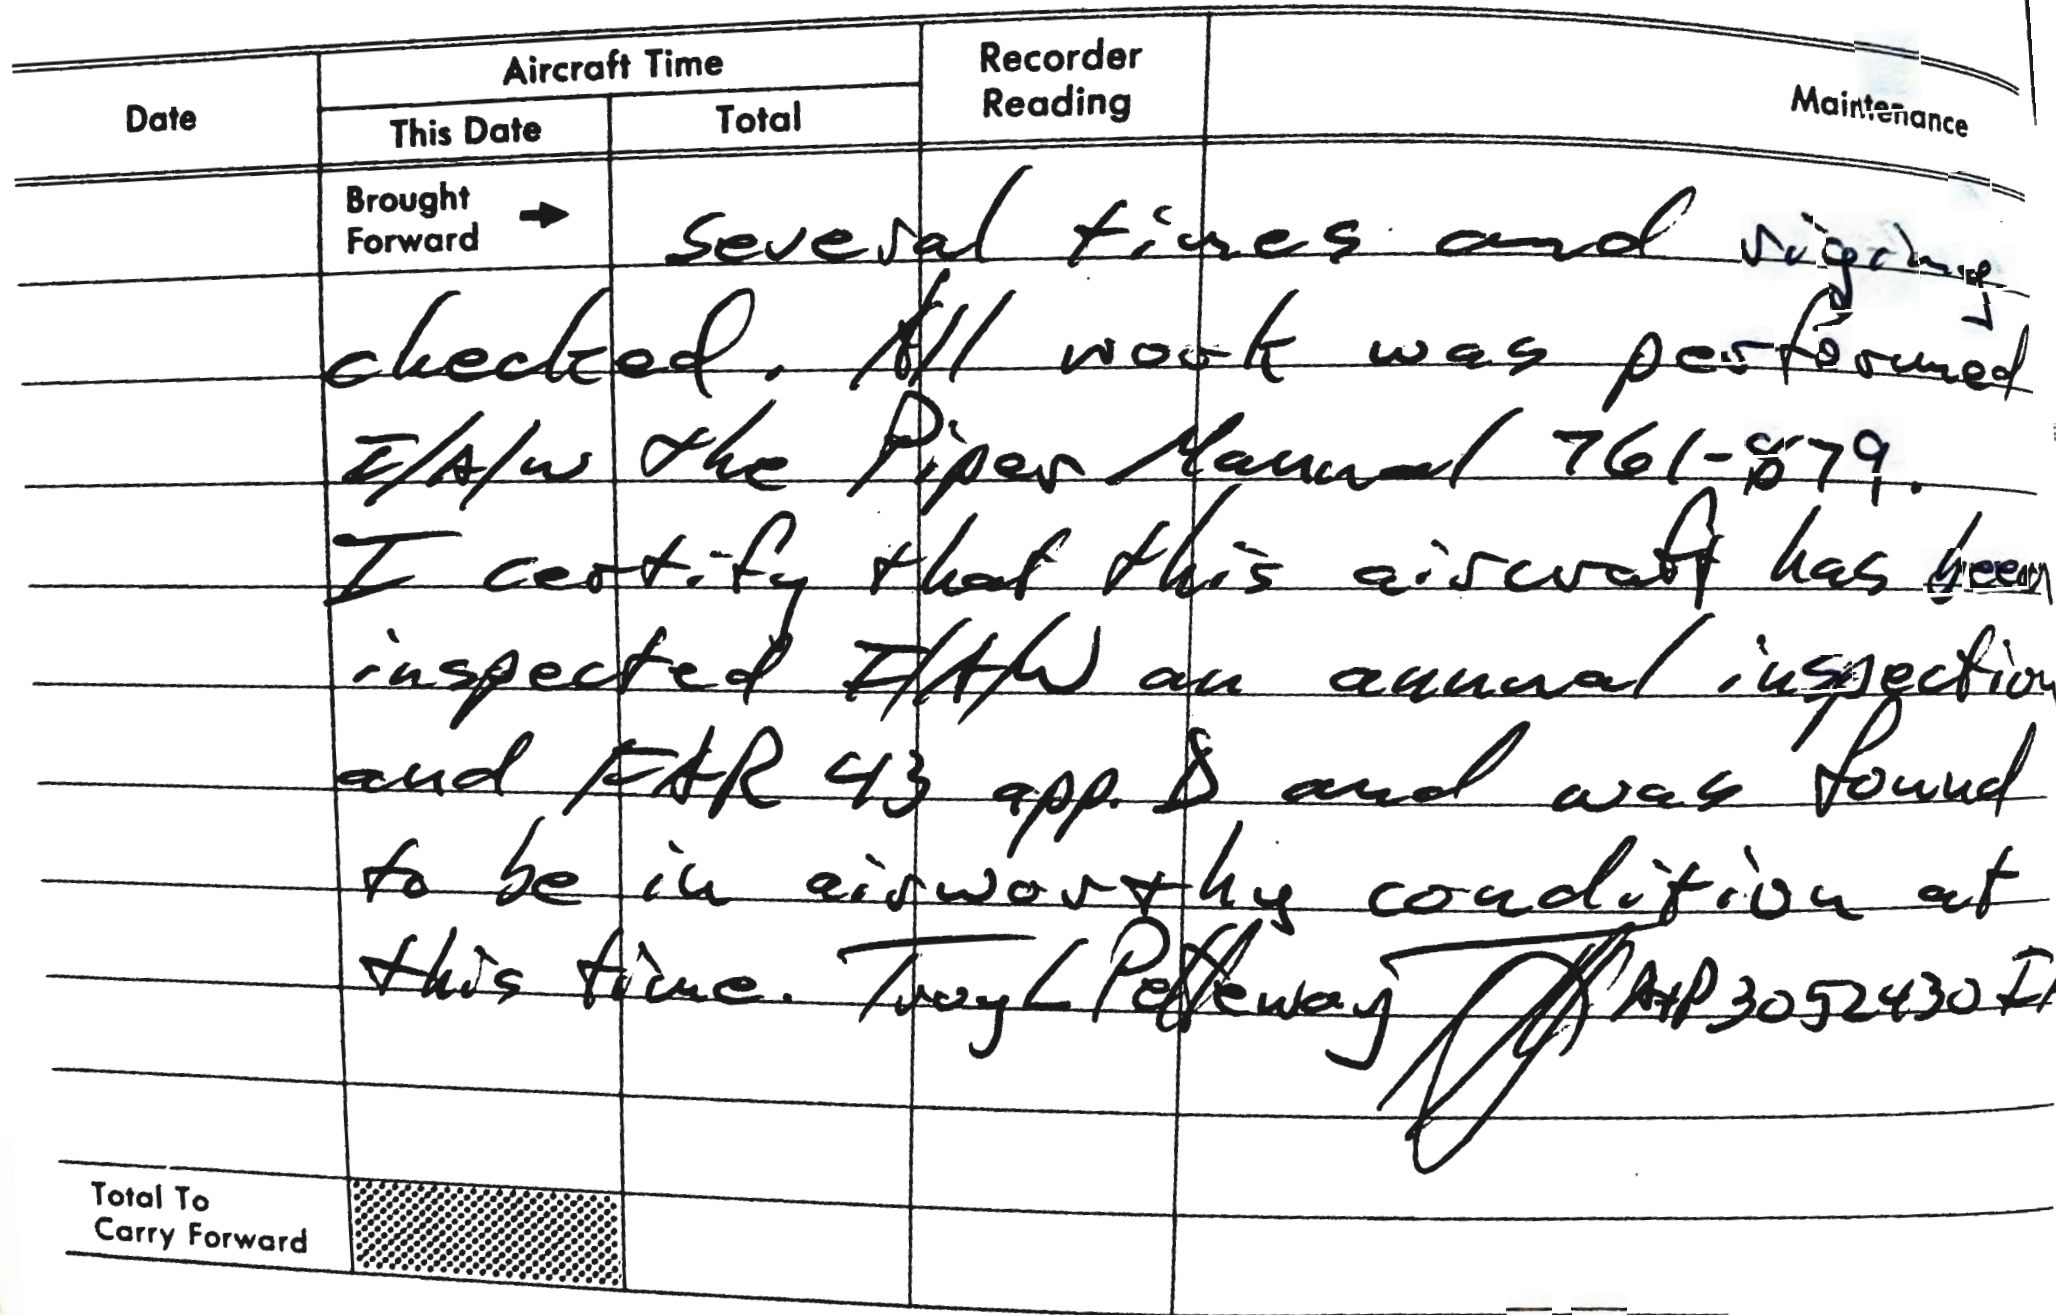 Date Aircraft Time Recorder Reading Maintenance
This Date Total
Brought Forward → several times and rigging
checked. All work was performed
I/A/W the Piper Manual 761-879.
I certify that this aircraft has been
inspected I/A/W an annual inspection
and FAR 43 app. D and was found
to be in airworthy condition at
this time. Troy L Petteway A+P 3052430 IA
Total To
Carry Forward